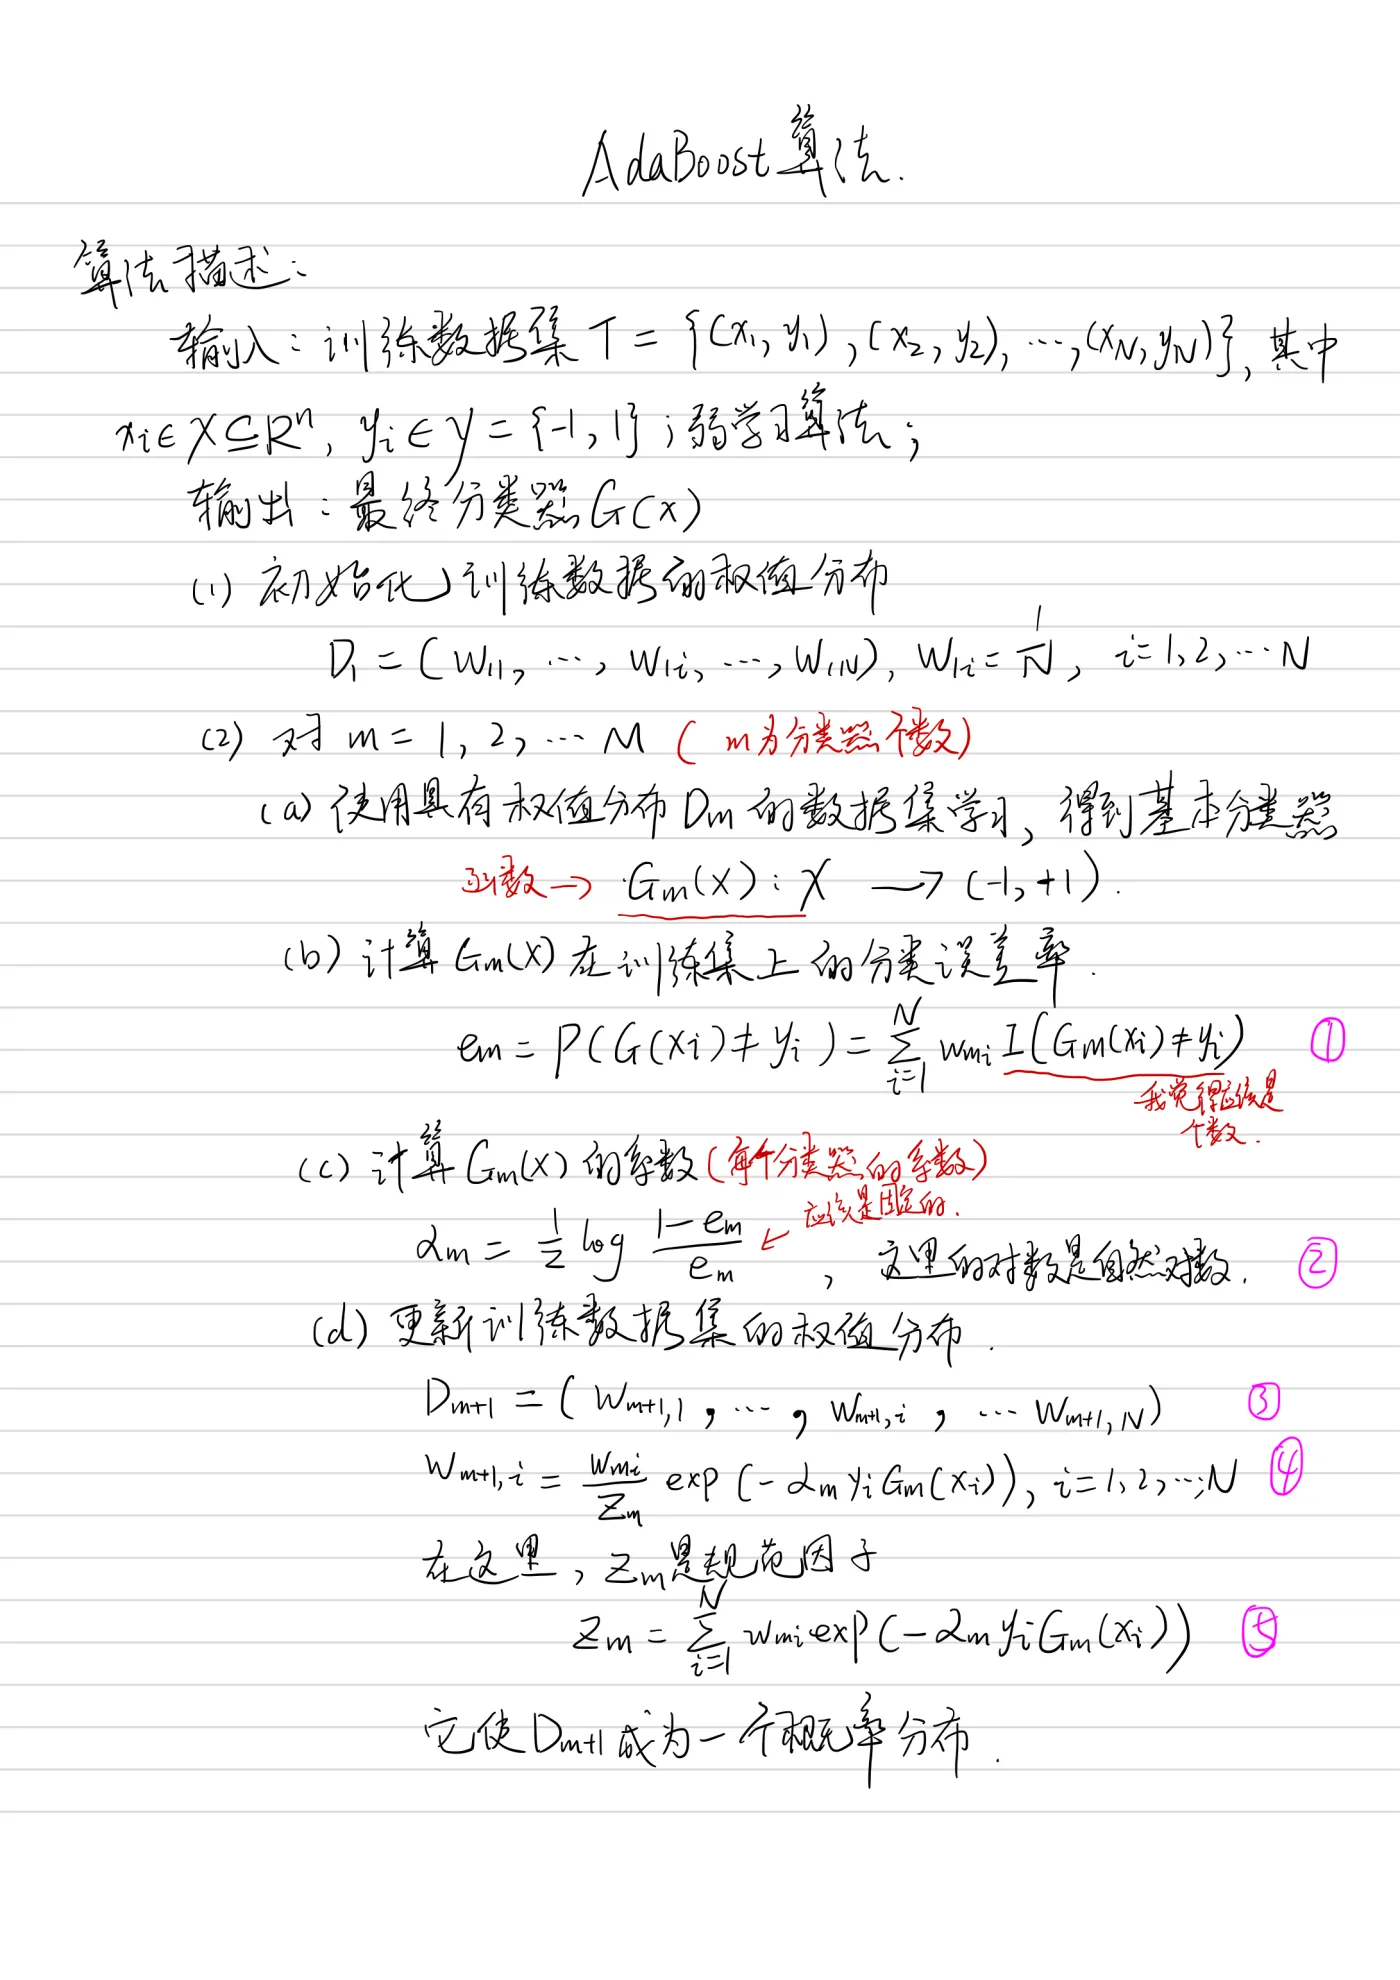 AdaBoost算法.
算法描述:
输入:训练数据集 T = {(x₁, y₁), (x₂, y₂), …, (x_N, y_N)}, 其中
x_i ∈ X ⊆ Rⁿ, y_i ∈ y = {-1, 1} ; 弱学习算法;
输出:最终分类器 G(x)
(1) 初始化训练数据的权值分布
D₁ = (w₁₁, …, w₁ᵢ, …, w₁N), w₁ᵢ = 1/N, i=1,2,…N
(2) 对 m = 1, 2, … M ( m为分类器个数)
(a) 使用具有权值分布 Dm 的数据集学习, 得到基本分类器
函数→ Gm(x) : X → (-1, +1).
(b) 计算 Gm(x) 在训练集上的分类误差率.
em = P(G(xi) ≠ yi) = ∑_{i=1}^{N} wmi I(Gm(xi) ≠ yi) ①
我觉得应该是
个数.
(c) 计算 Gm(x) 的系数 (每个分类器的系数)
应该是固定的.
αm = 1/2 log (1-em)/em , 这里的对数是自然对数. ②
(d) 更新训练数据集的权值分布.
D_{m+1} = (w_{m+1,1}, …, w_{m+1,i}, … w_{m+1,N}) ③
w_{m+1,i} = wmi/Zm exp(-αm yi Gm(xi)), i=1,2,…,N ④
在这里, Zm是规范因子
Zm = ∑_{i=1}^{N} wmi exp(-αm yi Gm(xi)) ⑤
它使 D_{m+1} 成为一个概率分布.